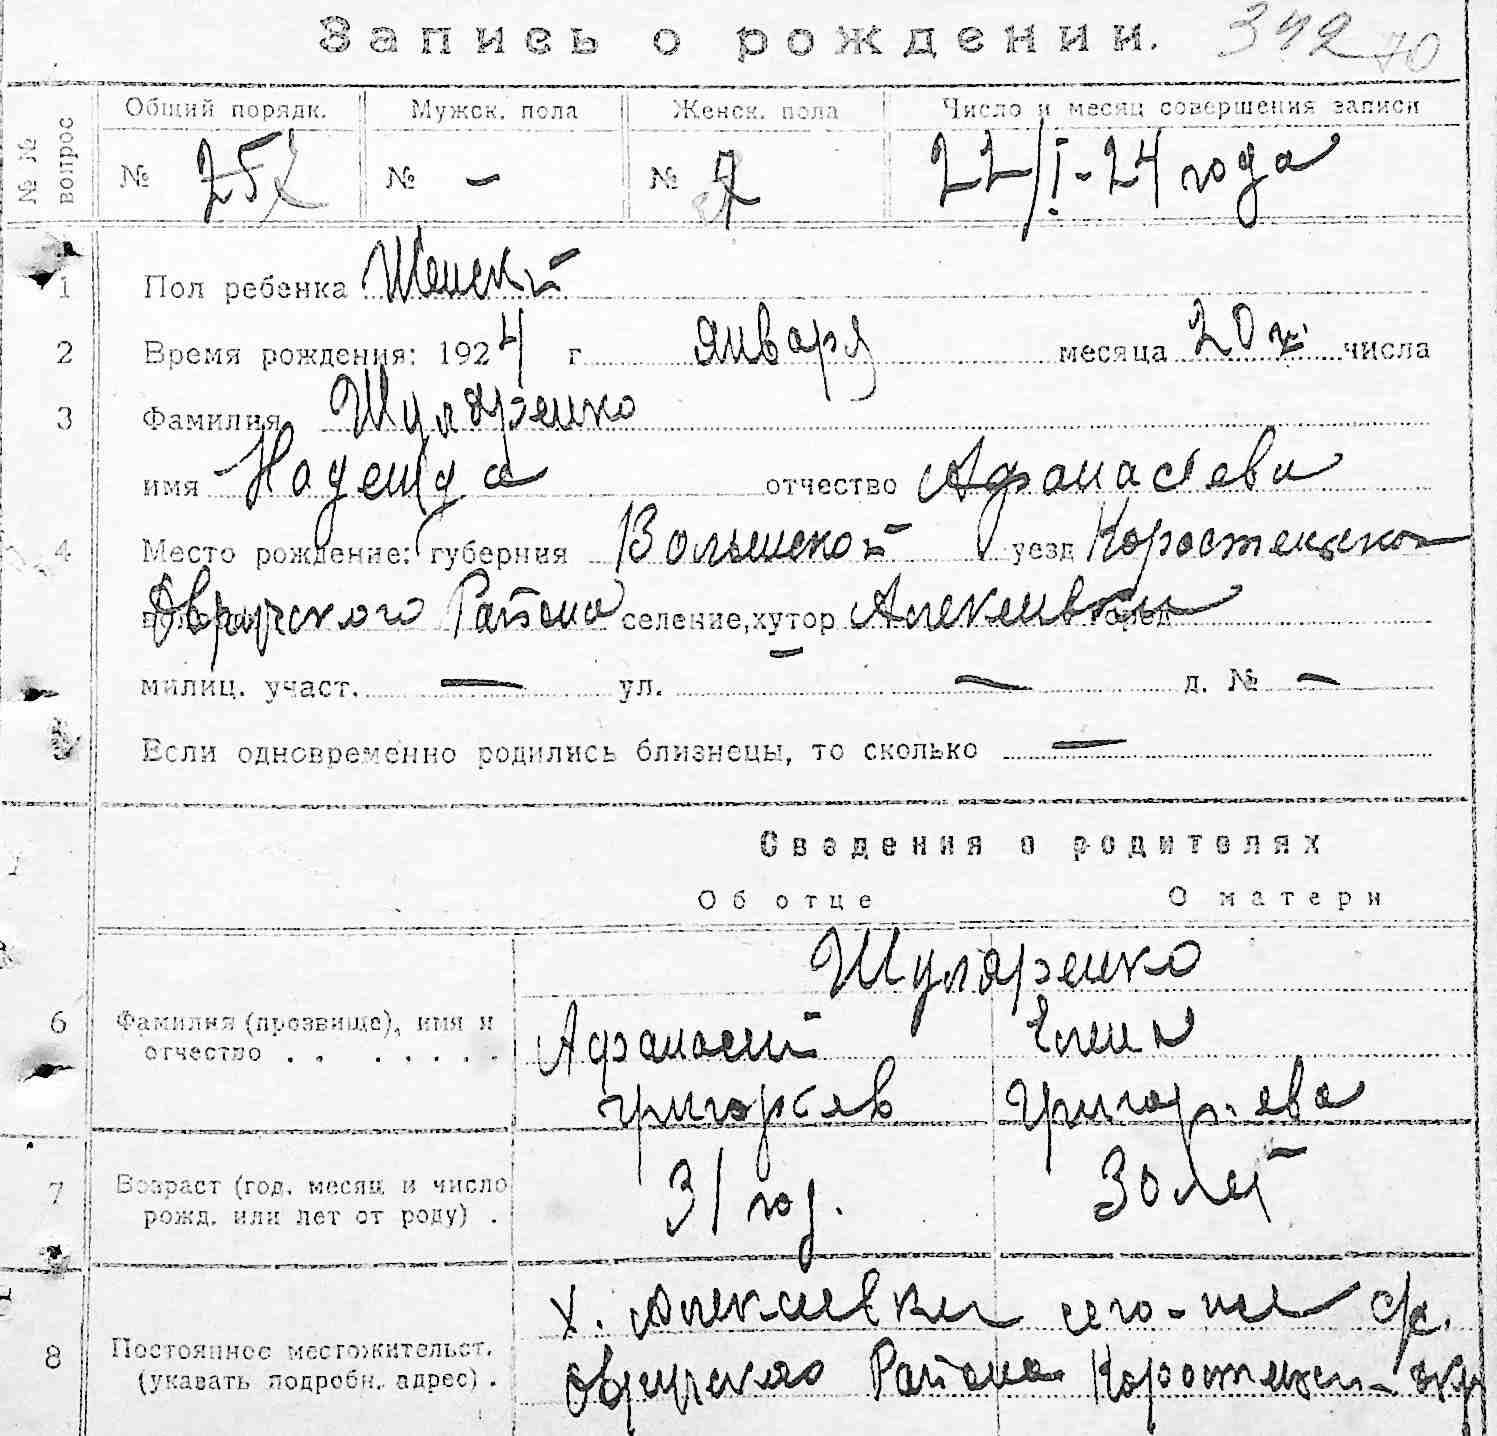 Запись о рождении. 342 70
№№ вопрос Общий порядк. Мужск. пола Женск. пола Число и месяц совершения записи
№ 252 № – № 7 22/I-24 года
1 Пол ребенка Женский
2 Время рождения: 1924 г января месяца 20го числа
3 Фамилия Шуляренко
имя Надежда отчество Афанасьева
4 Место рождение: губерния Волынской уезд Коростенского
Овручского Района селение, хутор Алексеевки
милиц. участ. – ул. – д. № –
5 Если одновременно родились близнецы, то сколько –
Сведения о родителях
Об отце О матери
Шуляренко
6 Фамилия (прозвище), имя и Афанасий Елена
отчество . . . . . . . Григорьев Григорьева
7 Возраст (год, месяц и число 31 год. 30 лет
рожд. или лет от роду) .
х. Алексеевки
8 Постоянное местожительст.
(указать подробн. адрес) . Овручского Района